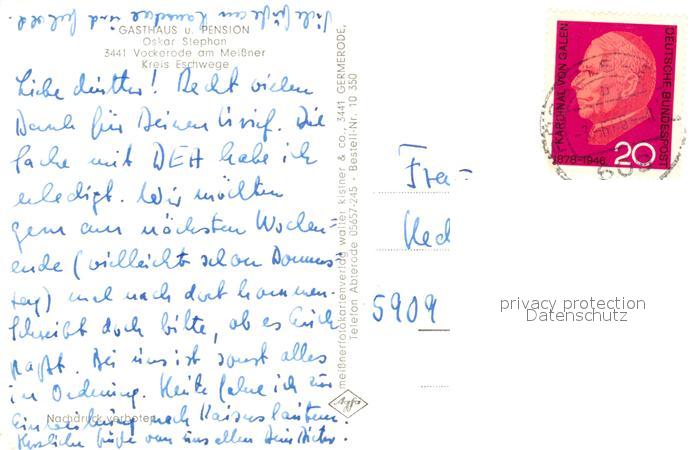 Viele Grüße an
GASTHAUS u. PENSION
Oskar Stephan
3441 Vockerode am Meißner
Kreis Eschwege
Liebe Mutter! Recht vielen
Dank für Deinen Brief. Die
Sache mit DEH habe ich
erledigt. Wir möchten
gern am nächsten Wochen-
ende (vielleicht schon Donners-
tag) mal nach dort kommen.
Schreibt doch bitte, ob es Euch
paßt. Bei uns ist sonst alles
in Ordnung. Heute fahre ich zur
Einweihung nach Kaiserslautern.
Herzliche Grüße von uns allen Dein Dieter.
Nachdruck verboten
meißnerfotokartenverlag walter kistner & co., 3441 GERMERODE,
Telefon Abterode 05657-245 - Bestell-Nr. 10 350
Agfa
Frau
5909
KARDINAL VON GALEN
1878-1946
20
DEUTSCHE BUNDESPOST
privacy protection
Datenschutz